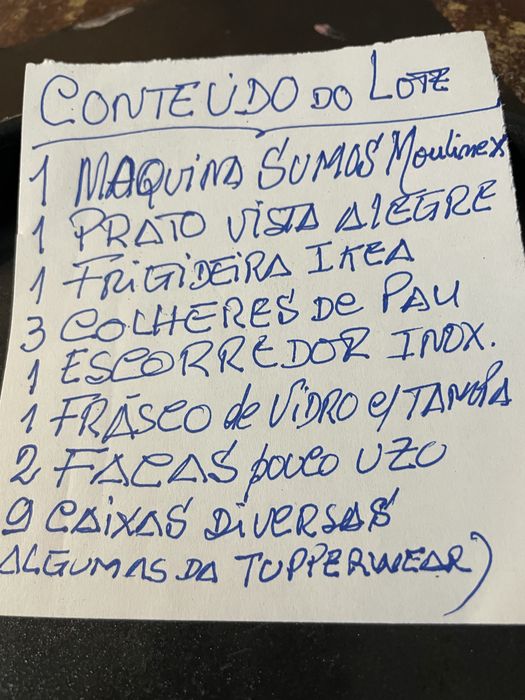 CONTEÚDO DO LOTE
1 MAQUINA SUMOS Moulinex
1 PRATO VISTA ALEGRE
1 FRIGIDEIRA IKEA
3 COLHERES DE PAU
1 ESCORREDOR INOX.
1 FRÁSCO de VIDRO c/TAMPA
2 FACAS pouco UZO
9 CAIXAS DIVERSAS
ALGUMAS DA TUPPERWEAR)